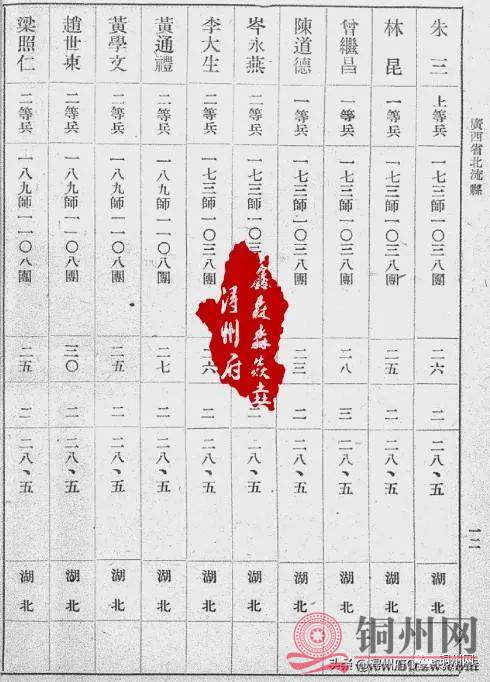 廣西省北流縣 一二
朱三 上等兵 一七三師一〇三八團 二六 二 二八、五 湖北
林昆 一等兵 一七三師一〇三八團 二五 二 二八、五 湖北
曾繼昌 一等兵 一七三師一〇三八團 二八 三 二八、五 湖北
陳道德 一等兵 一七三師一〇三八團 二三 二 二八、五 湖北
岑永燕 二等兵 一七三師一〇三 二 二八、五 湖北
李大生 二等兵 一七三師一〇三八團 二六 二 二八、五 湖北
黃通禮 二等兵 一八九師一一〇八團 二七 二 二八、五 湖北
黃學文 二等兵 一八九師一一〇八團 二五 二 二八、五 湖北
趙世東 二等兵 一八九師一一〇八團 三〇 二 二八、五 湖北
梁照仁 二等兵 一八九師一一〇八團 二五 二 二八、五 湖北
鑫森淼焱垚
潯州府
铜州网